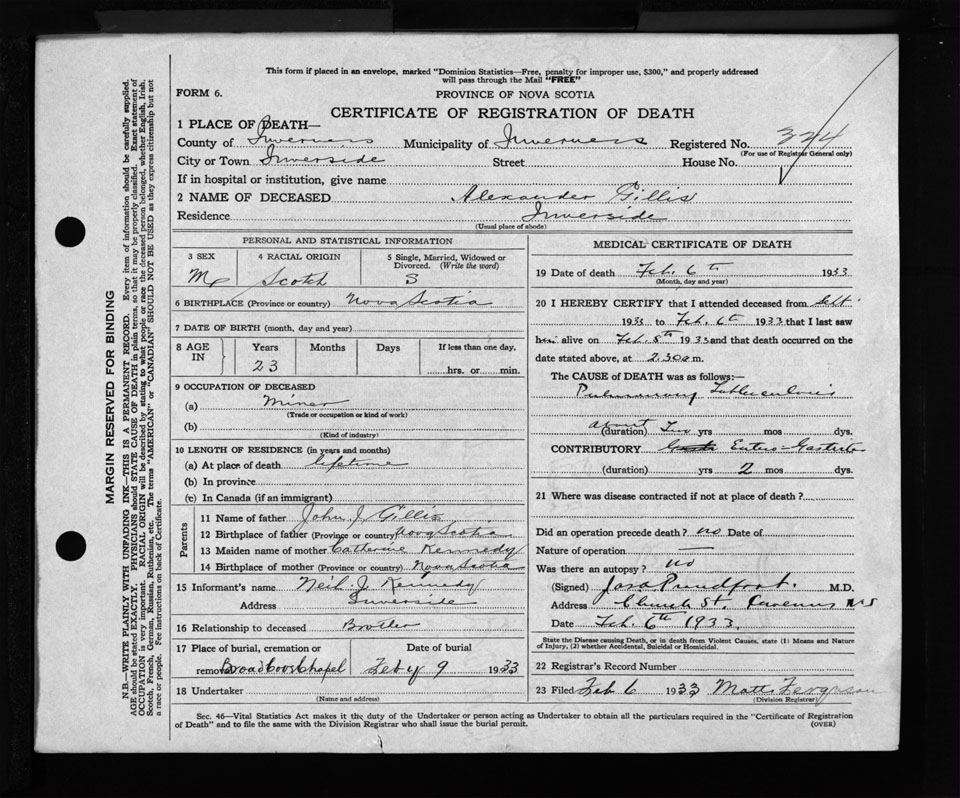 This form if placed in an envelope, marked "Dominion Statistics—Free, penalty for improper use, $300," and properly addressed
will pass through the Mail "FREE"
FORM 6.
PROVINCE OF NOVA SCOTIA
CERTIFICATE OF REGISTRATION OF DEATH
1 PLACE OF DEATH—
County of Inverness Municipality of Inverness Registered No. 324
(For use of Registrar General only)
City or Town Inverside Street House No.
If in hospital or institution, give name
2 NAME OF DECEASED Alexander Gillis
Residence Inverside
(Usual place of abode)
PERSONAL AND STATISTICAL INFORMATION
3 SEX 4 RACIAL ORIGIN 5 Single, Married, Widowed or
Divorced. (Write the word)
M Scotch S
6 BIRTHPLACE (Province or country) Nova Scotia
7 DATE OF BIRTH (month, day and year)
8 AGE IN Years Months Days If less than one day,
23 hrs. or min.
9 OCCUPATION OF DECEASED
(a) Miner
(Trade or occupation or kind of work)
(b)
(Kind of industry)
10 LENGTH OF RESIDENCE (in years and months)
(a) At place of death lifetime
(b) In province
(c) In Canada (if an immigrant)
Parents
11 Name of father John J Gillis
12 Birthplace of father (Province or country) Nova Scotia
13 Maiden name of mother Catherine Kennedy
14 Birthplace of mother (Province or country) Nova Scotia
15 Informant's name Neil J. Kennedy
Address Inverside
16 Relationship to deceased
17 Place of burial, cremation or Date of burial
removal Broad Cove Chapel Feby 9 1933
18 Undertaker
(Name and address)
MEDICAL CERTIFICATE OF DEATH
19 Date of death Feb. 6th 1933
(Month, day and year)
20 I HEREBY CERTIFY that I attended deceased from
193 to Feb. 6th 1933 that I last saw
him alive on Feb. 5th 1933 and that death occurred on the
date stated above, at 2.30 a m.
The CAUSE OF DEATH was as follows:—
Pulmonary Tuberculosis
About
(duration) Two yrs mos dys.
CONTRIBUTORY Entero-Gastritis
(duration) yrs 2 mos dys.
21 Where was disease contracted if not at place of death?
Did an operation precede death? no Date of
Nature of operation —
Was there an autopsy? no
(Signed) Jas. A. Proudfoot. M.D.
Address Church St. Inverness N S
Date Feb. 6th 1933.
State the Disease causing Death, or in death from Violent Causes, state (1) Means and Nature
of Injury, (2) whether Accidental, Suicidal or Homicidal.
22 Registrar's Record Number
23 Filed Feb 6 1933 Matt. Ferguson
(Division Registrar)
Sec. 46—Vital Statistics Act makes it the duty of the Undertaker or person acting as Undertaker to obtain all the particulars required in the "Certificate of Registration
of Death" and to file the same with the Division Registrar who shall issue the burial permit. (OVER)
MARGIN RESERVED FOR BINDING
N.B.—WRITE PLAINLY WITH UNFADING INK—THIS IS A PERMANENT RECORD. Every item of information should be carefully supplied.
AGE should be stated EXACTLY. PHYSICIANS should STATE CAUSE OF DEATH in plain terms, so that it may be properly classified. Exact statement of
OCCUPATION is very important. RACIAL ORIGIN will be described by stating to what people or race the deceased person belonged, whether English, Irish,
Scotch, French, German, Russian, Ruthenian, etc. The terms "AMERICAN" or "CANADIAN" SHOULD NOT BE USED as they express citizenship but not
a race or people. See instructions on back of Certificate.